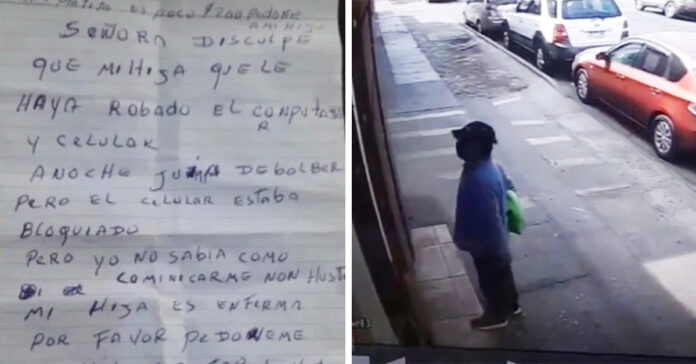 PLATITA ES POCO $200 PERDONE
A MI HIJA
SEÑORA DISCULPE
QUE MI HIJA QUE LE
HAYA ROBADO EL COMPUTADO
R
Y CELULAR
ANOCHE JUIMA DEBOLBER
PERO EL CELULAR ESTABA
BLOQUIADO
PERO YO NO SABIA COMO
COMINICARME NON HUSTE
MI HIJA ES ENFERMA
POR FAVOR PEDONEME